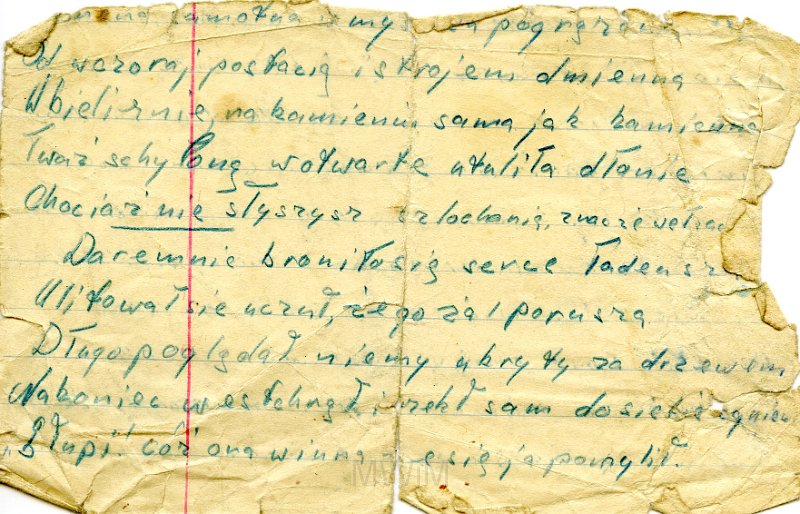 samotna w myś pogrąż
Od wczoraj postacią i strojem dmienna
W bieliźnie, na kamieniu sama jak kamienna
Twarz schyloną w otwarte utuliła dłanie
Chociaż nie słyszysz szlochania, znać że we łzach
Daremnie broniło się serce Tadeusz
Ulitował sie uczuł, że go żal porusza
Długo poglgdał niemy ukryty za drzewem
Nakoniec westchnął i rzekł sam do siebie z gniew
„Głupi! cóż ona winna że się ja pomylił.
MWiM